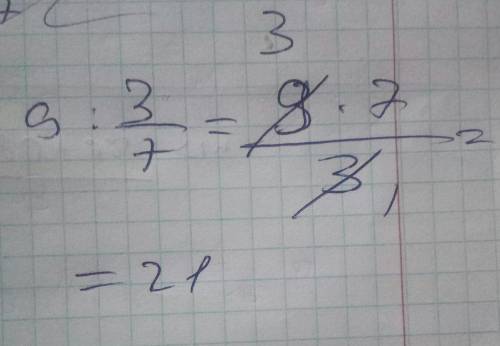 3
9 : 3/7 = 9 · 7 / 3 1 =
= 21